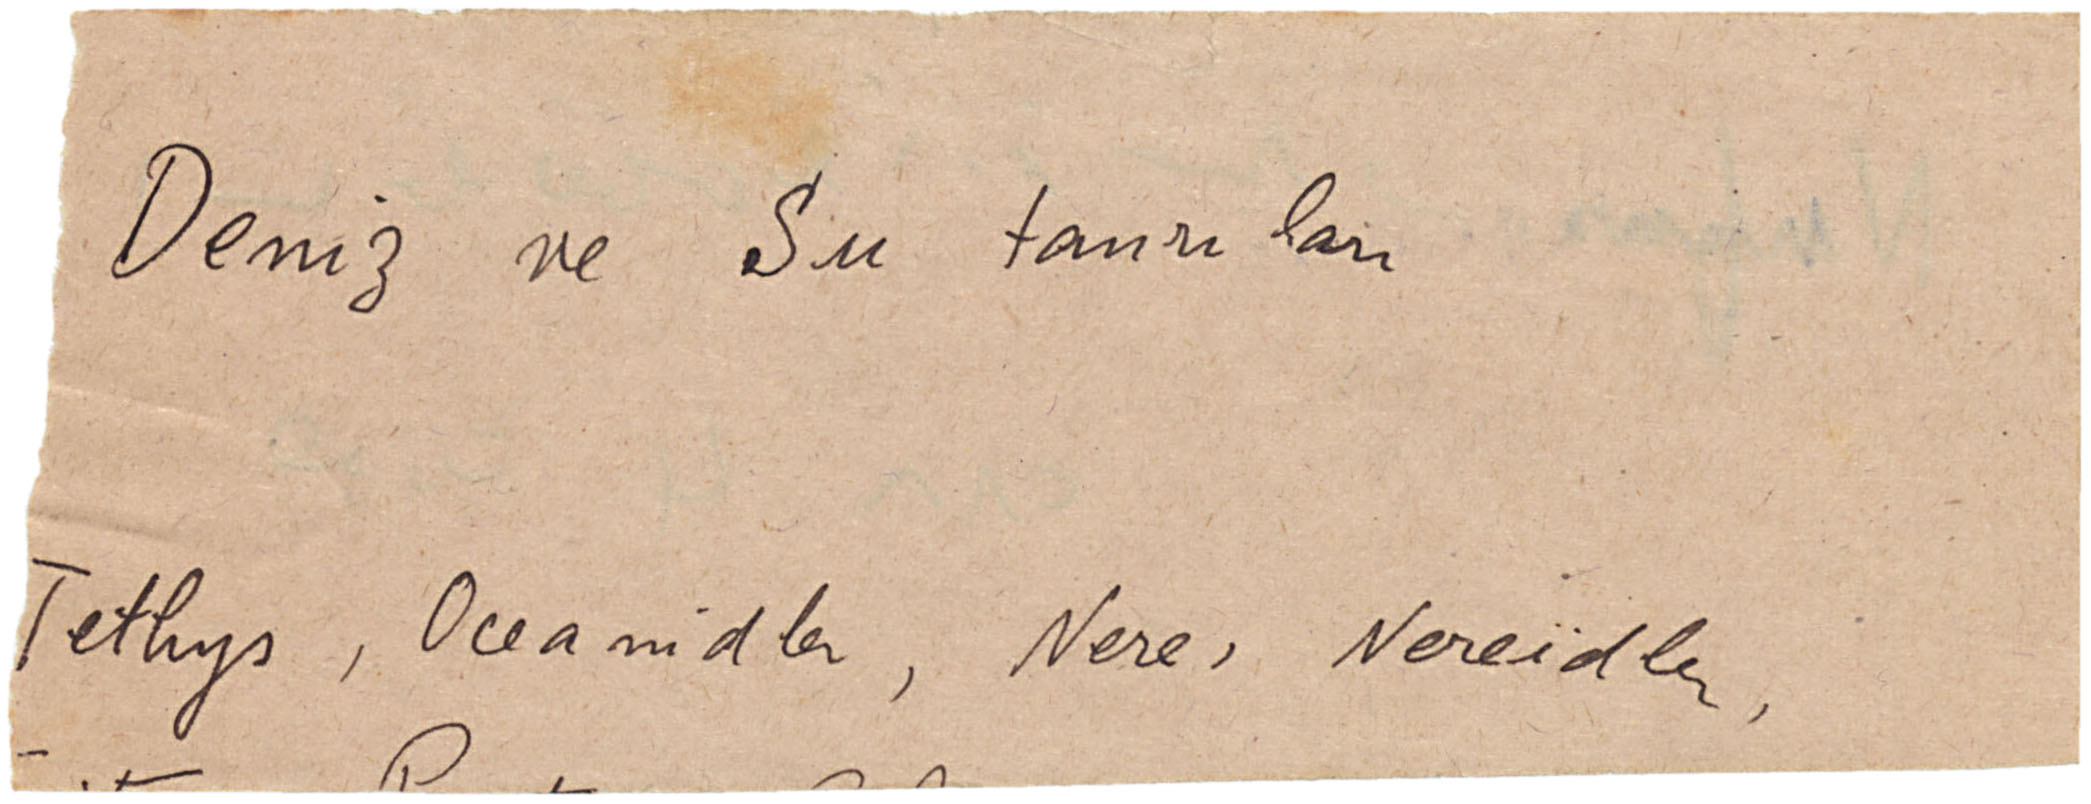 Deniz ve Su tanrıları
Tethys, Oceanidler, Nere, Nereidler,